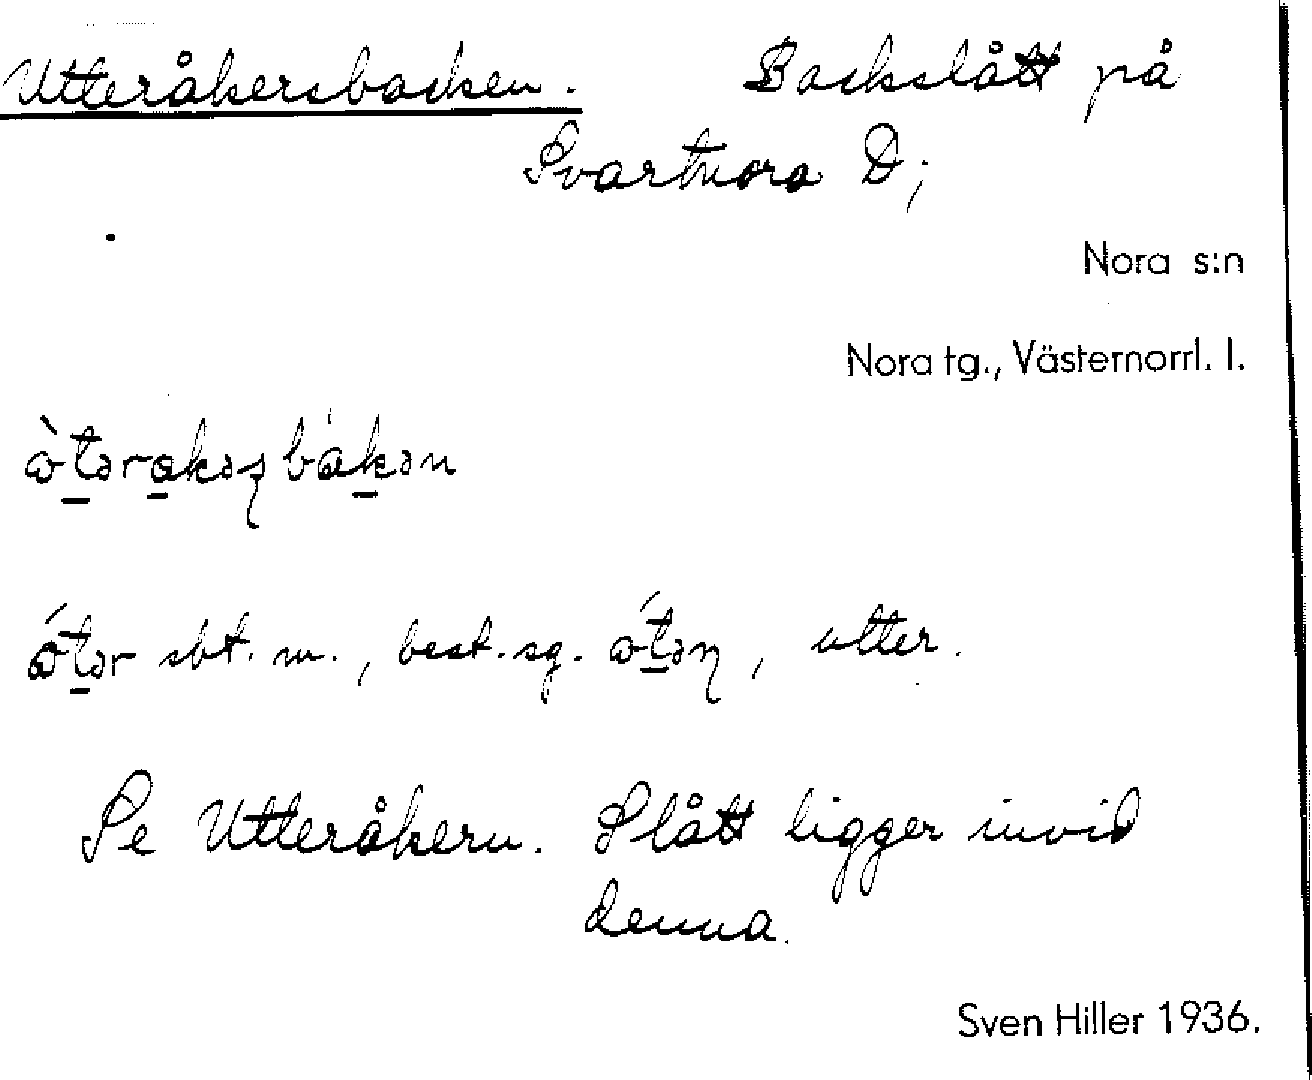 Utteråkersbacken. Backslått på
Svartnora D;
Nora s:n
Nora tg., Västernorrl. l.
ὼt̲əra̲kəʂbák̲ən
ώt̲ər sbt. m., best. sg. ώt̲əɳ, utter.
Se Utteråkern. Slått ligger invid
denna.
Sven Hiller 1936.